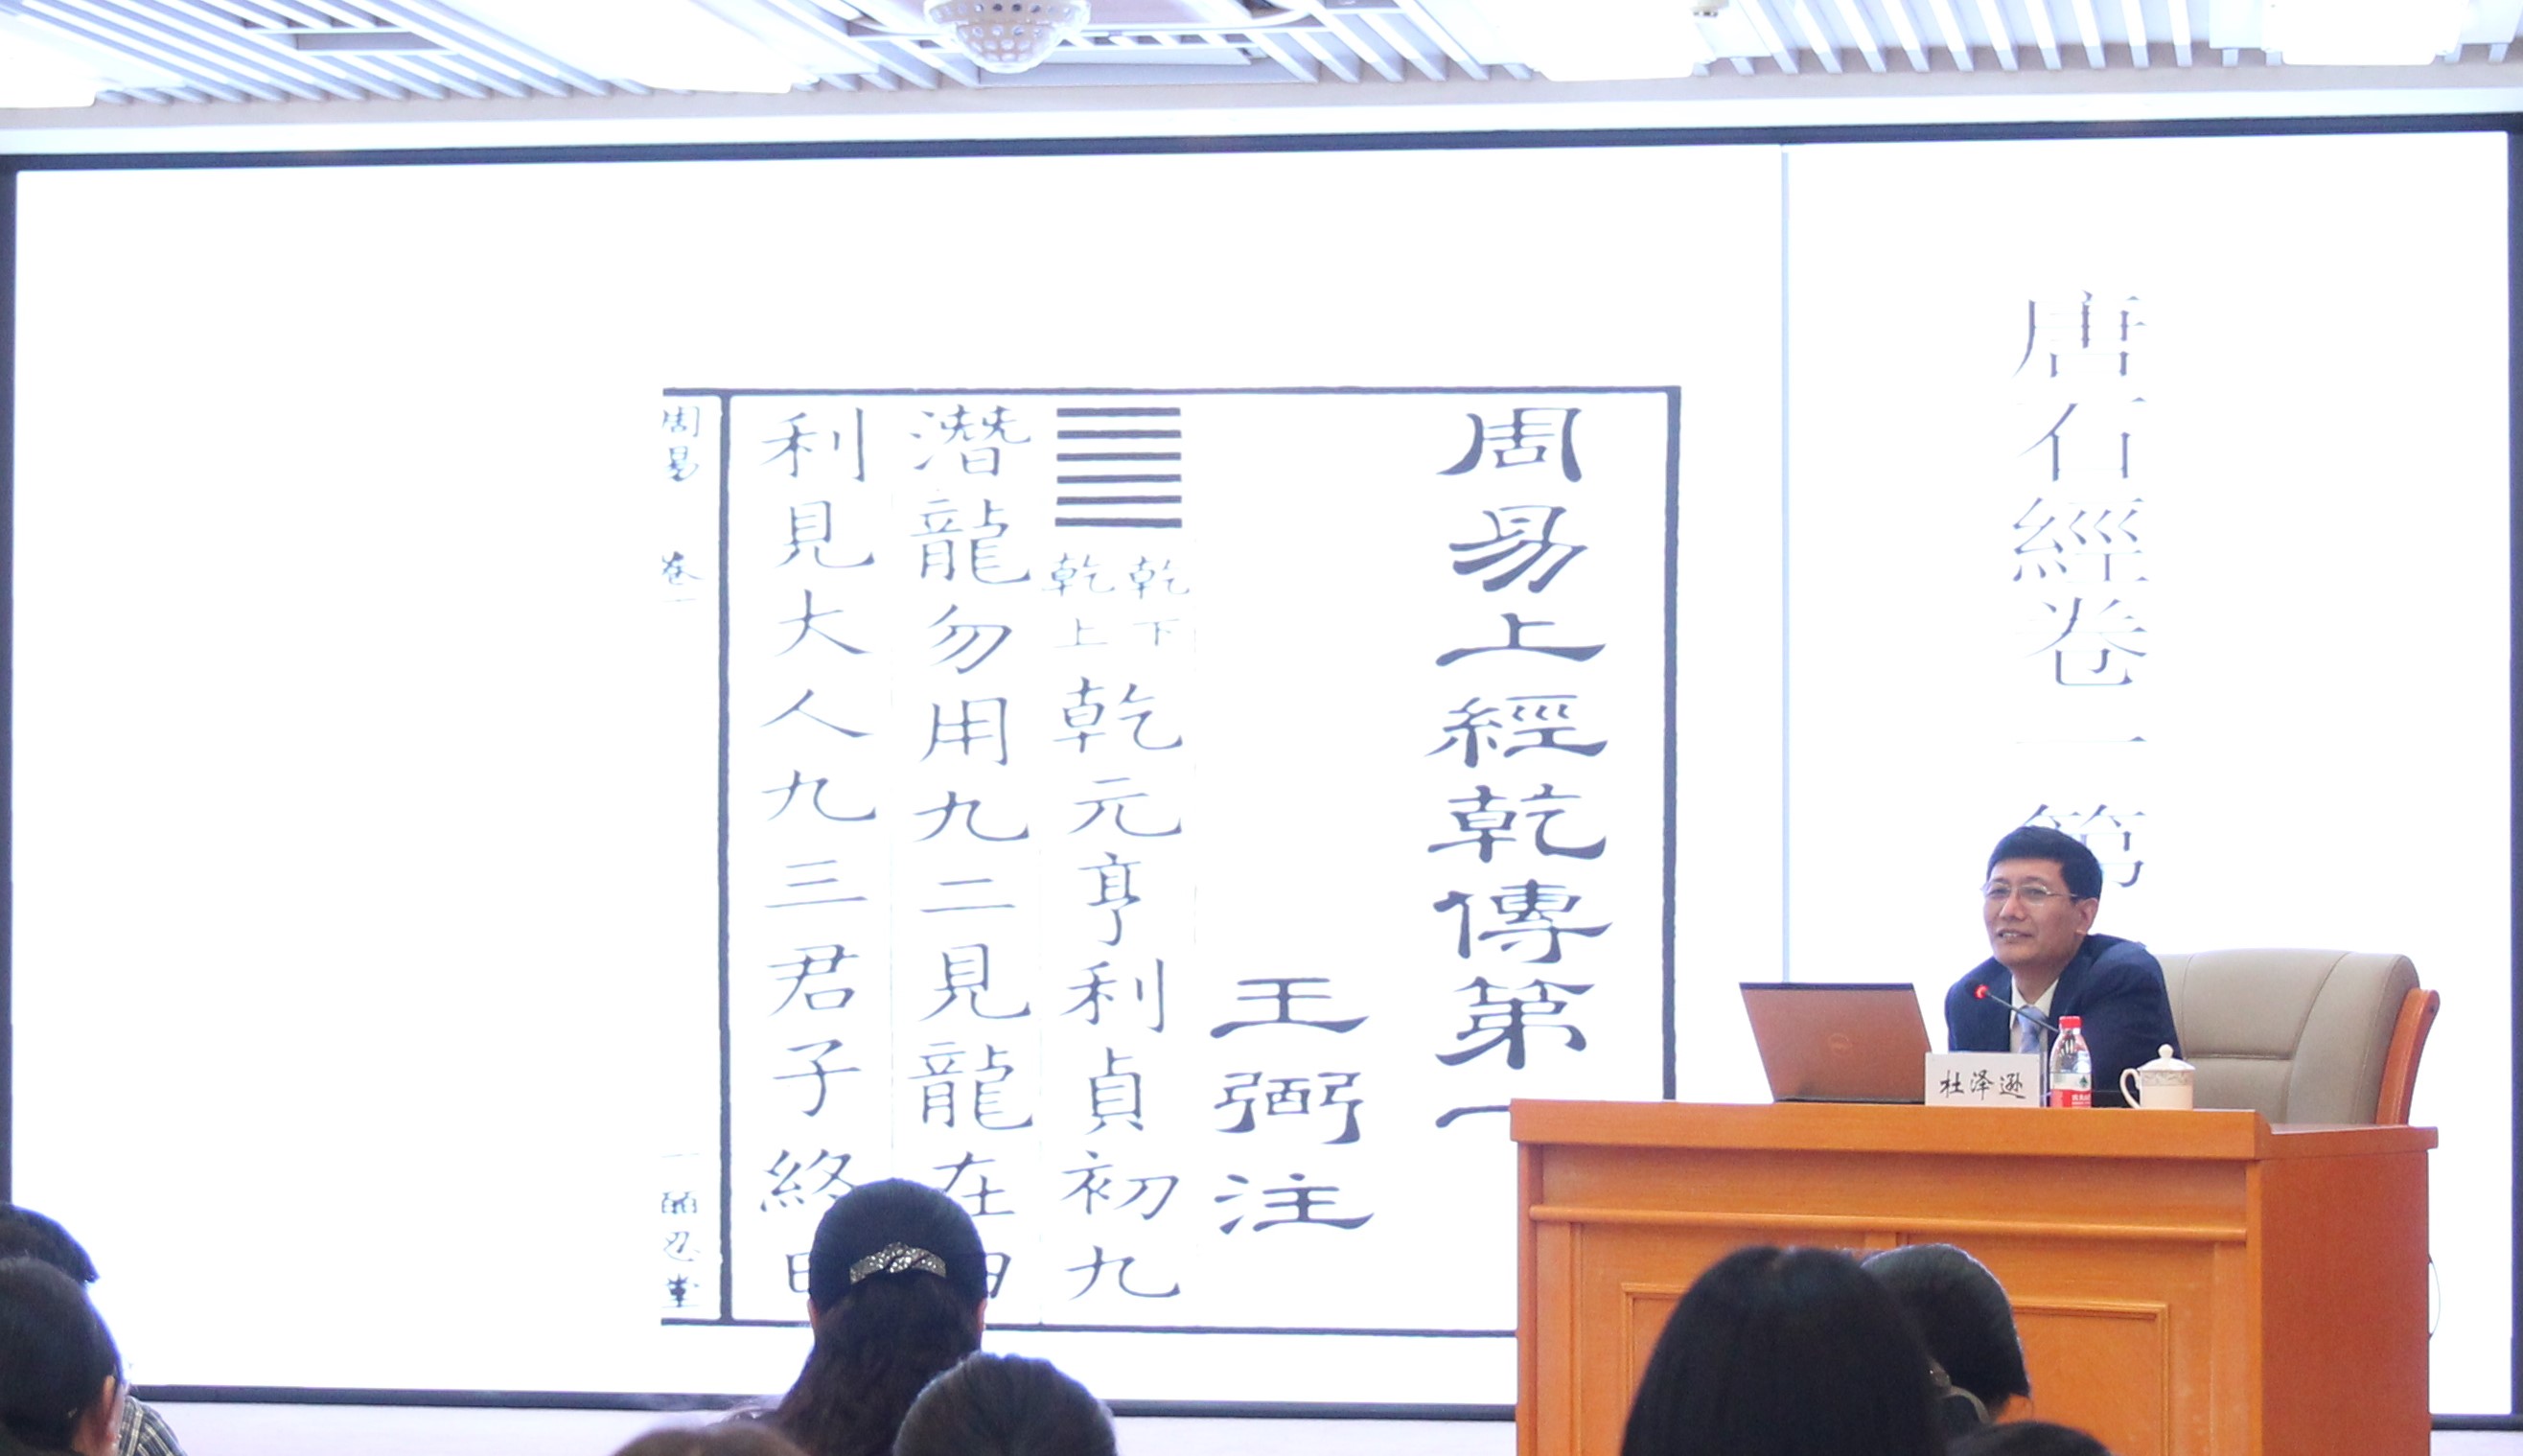 唐石經卷一第
周易上經乾傳第一
王弼注
乾下
乾上
乾元亨利貞初九
潛龍勿用九二見龍在田
利見大人九三君子終日
周易 卷一
一 皕忍堂
杜泽逊